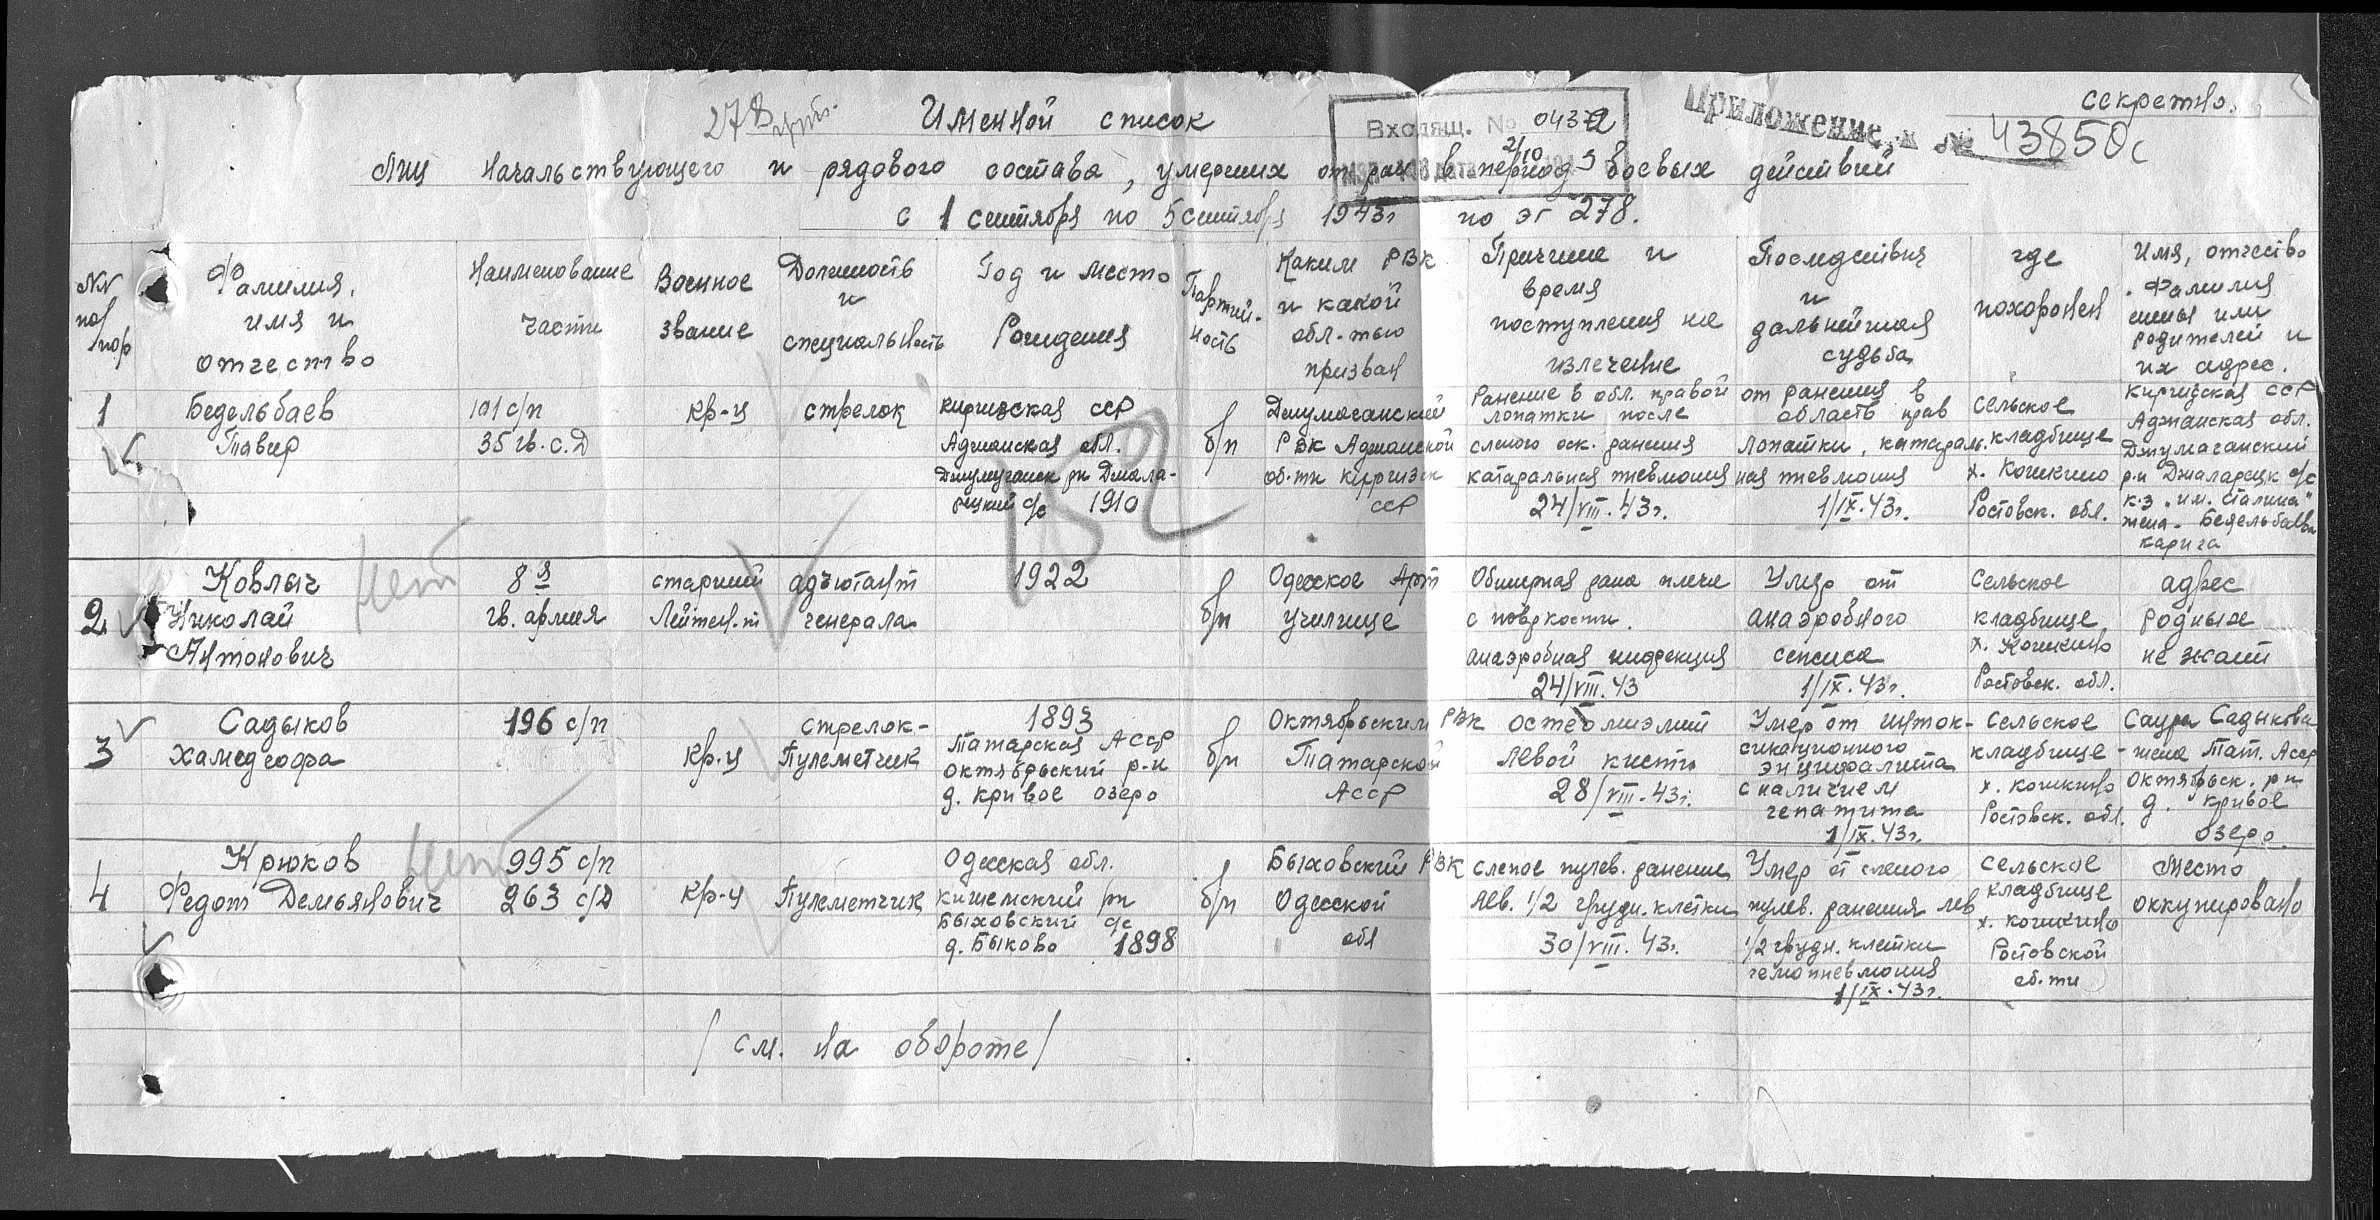 278
Именной список
секретно.
Входящ. № 0437
2/10
Приложение к № 43850с
Лиц начальствующего и рядового состава, умерших от ран в период боевых действий
с 1 сентября по 5 сентября 1943г по эг 278.
NN по пор
Фамилия, имя и отчество
Наименование части
Военное звание
Должность и специальность
Год и место рождения
Партийность
Каким РВК и какой обл-тью призван
Причина и время поступления на излечение
Последствия и дальнейшая судьба
где похоронен
Имя, отчество, фамилия жены или родителей и их адрес.
1
Бедельбаев
101 с/п
35 гв. с.Д
кр-ц
стрелок
Киргизская ССР
обл.
1910
б/п
РВК
ССР
Ранение в обл. правой
лопатки после
слепого оск. ранения
катаральная пневмония
24/VIII.43г.
от ранения в
область прав
лопатки, катараль-
ная пневмония
1/IX.43г.
сельское
кладбище
х. Кошкино
Ростовск. обл.
Киргизская ССР
обл.
к-з "им. Сталина"
жена - Бедельбаева
2
Ковлыч
Николай
Антонович
нет
8 я
гв. армия
старший
Лейтен-т
адъютант
генерала
1922
б/п
Одесское Арт
училище
Обширная рана плеча
с поврхности.
анаэробная инфекция
24/VIII.43
Умер от
анаэробного
сепсиса
1/IX.43г.
сельское
кладбище
х. Кошкино
Ростовск. обл.
адрес
родных
не знает
3
Садыков
196 с/п
кр-ц
стрелок-
Пулеметчик
1893
Татарская АССР
октябрьский р-н
д. кривое озеро
б/п
Октябрьским РВК
Татарской
АССР
остеомиэлит
левой кисти
28/VIII.43г.
Умер от инток-
сикационного
энцифалита
с наличием
гепатита
1/IX.43г.
сельское
кладбище -
х. кошкино
Ростовск. обл.
Садыкова
жена Тат. Асср
октябрьск. р-н
д. кривое
озеро
4
Крюков
Федот Демьянович
нет
995 с/п
263 с/Д
кр-ц
Пулеметчик
Одесская обл.
Быховский с/с
д. Быково 1898
б/п
Быховский РВК
Одесской
обл
слепое пулев. ранение
лев. 1/2 грудн. клетки
30/VIII.43г.
Умер от слепого
пулев. ранения лев
1/2 грудн. клетки
гемопневмония
1/IX.43г.
сельское
кладбище
х. кошкино
Ростовской
об.ти
Место
оккупировано
152
/см. на обороте/